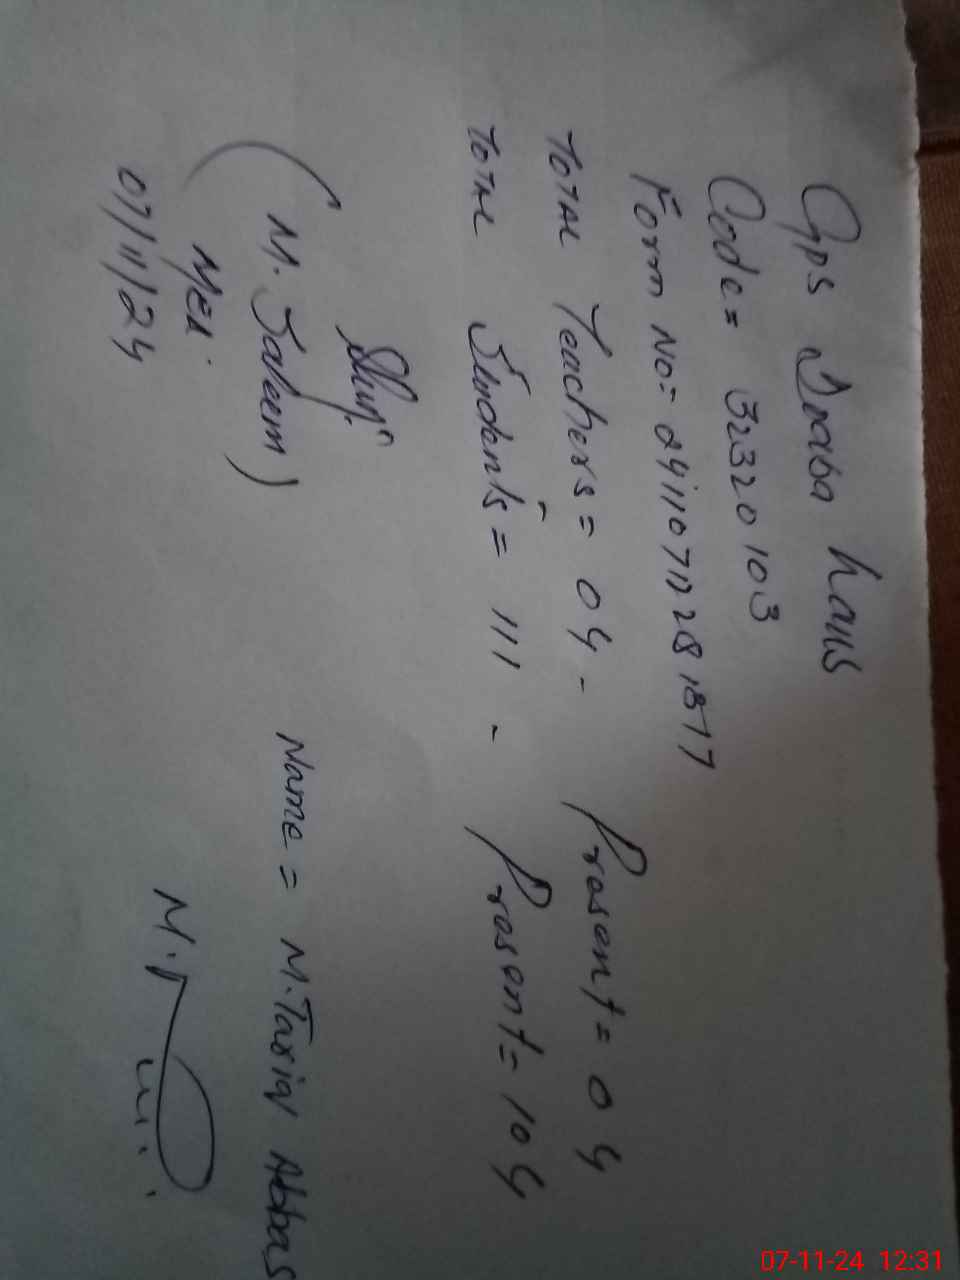 Gps Draba Kaus
Code = 32320103
Form No = 24110712281817
TOTAL Teachers = 04 - Present = 04
TOTAL Students = 111 - Present = 104
(M. Saleem)
MEA.
07/11/24
Name = M. Tariq Abbas
07-11-24 12:31